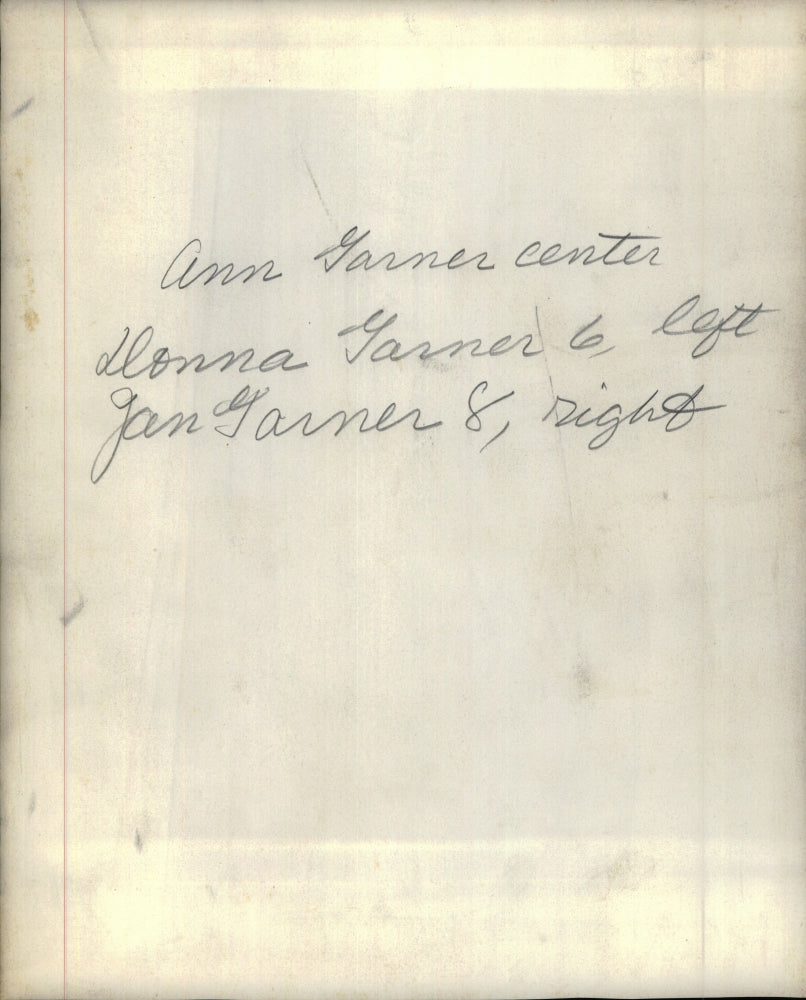 Ann Garner center
Donna Garner 6, left
Jan Garner 8, right